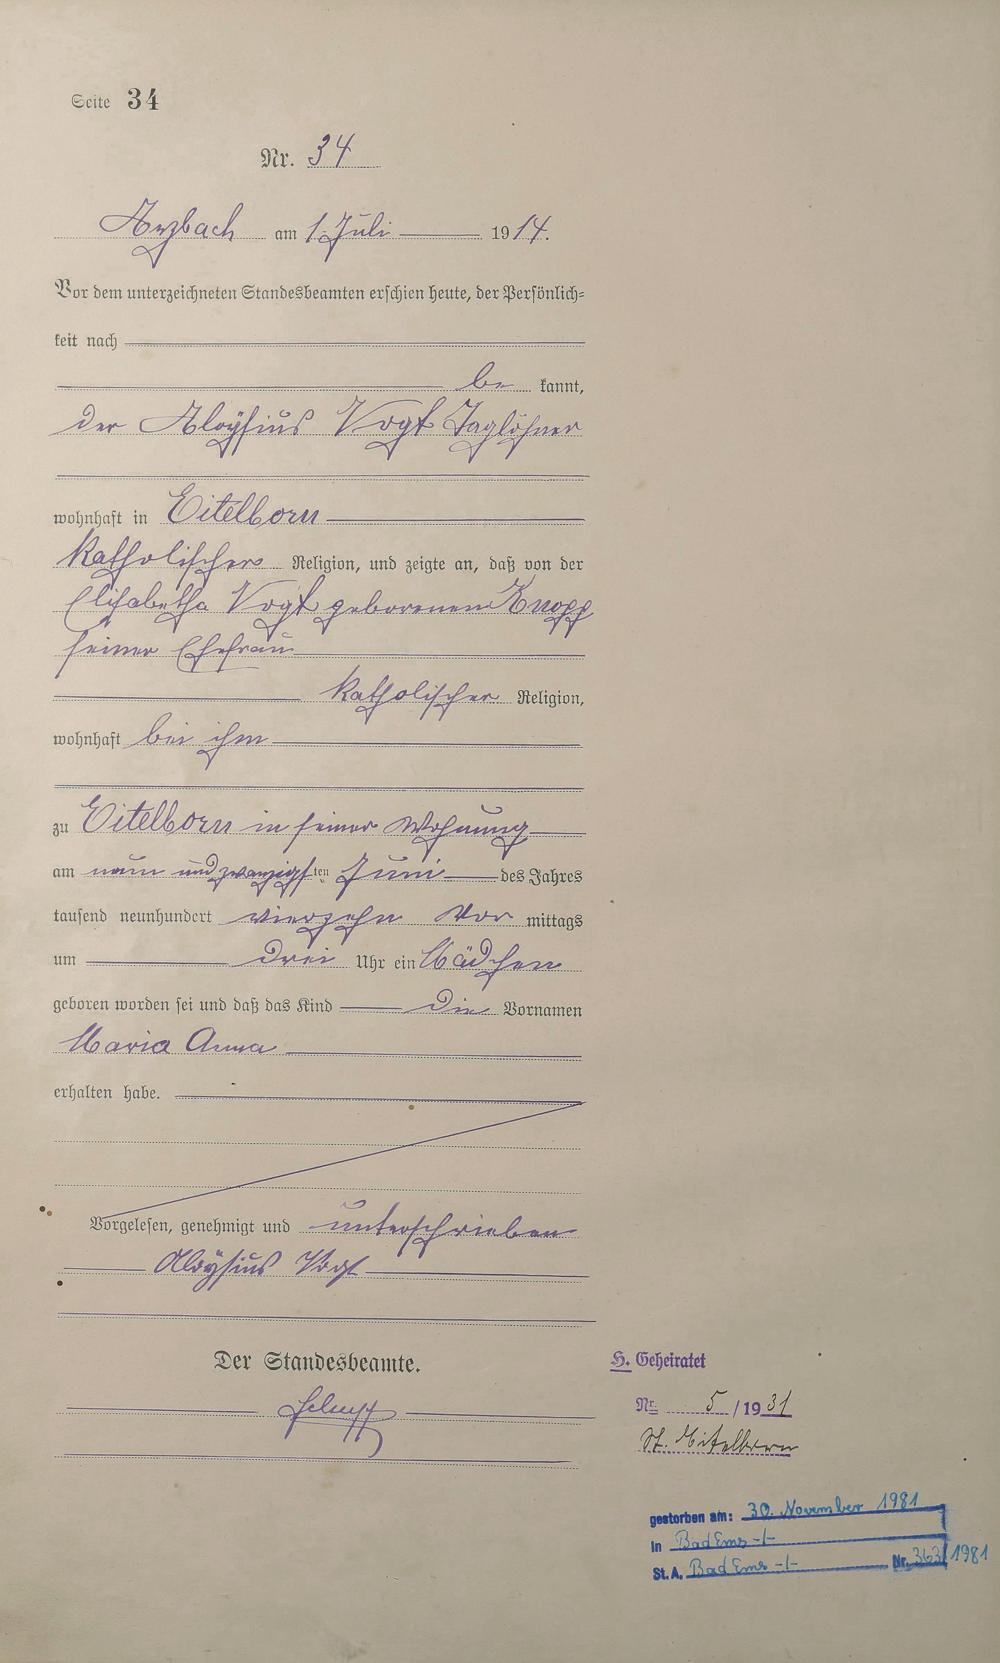 Seite 34
Nr. 34
Arzbach am 1. Juli 1914.
Vor dem unterzeichneten Standesbeamten erschien heute, der Persönlich=
keit nach
be kannt,
der Aloysius Vogt Taglöhner
wohnhaft in Eitelborn
katholischer Religion, und zeigte an, daß von der
Elisabetha Vogt geborenen Knopp
seiner Ehefrau
katholischer Religion,
wohnhaft bei ihm
zu Eitelborn in seiner Wohnung
am neun und zwanzigsten Juni des Jahres
tausend neunhundert vierzehn Vor mittags
um drei Uhr ein Mädchen
geboren worden sei und daß das Kind die Vornamen
Maria Anna
erhalten habe.
Vorgelesen, genehmigt und unterschrieben
Aloysius Vogt
Der Standesbeamte.
H. Geheiratet
Nr. 5 / 1931
St. Eitelborn
gestorben am: 30. November 1981
in Bad Ems -/-
St.A. Bad Ems -/- Nr. 363/1981